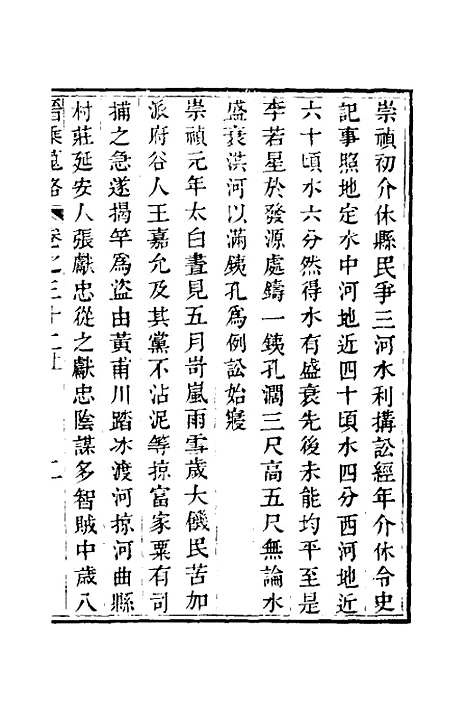 崇禎初介休縣民爭三河水利搆訟經年介休令史
記事照地定水中河地近四十頃水四分西河地近
六十頃水六分然得水有盛衰先後未能均平至是
李若星於發源處鑄一銕孔濶三尺高五尺無論水
盛衰洪河以滿銕孔爲例訟始寢
崇禎元年太白晝見五月岢嵐雨雪歲大饑民苦加
派府谷人王嘉允及其黨不沾泥等掠富家粟有司
捕之急遂揭竿爲盜由黃甫川踏冰渡河掠河曲縣
村莊延安人張獻忠從之獻忠陰謀多智賊中歲八
晉乘蒐略 卷之三十二上 二